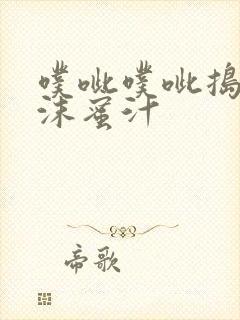 噗呲噗呲搗
沫蜜汁
帝歌